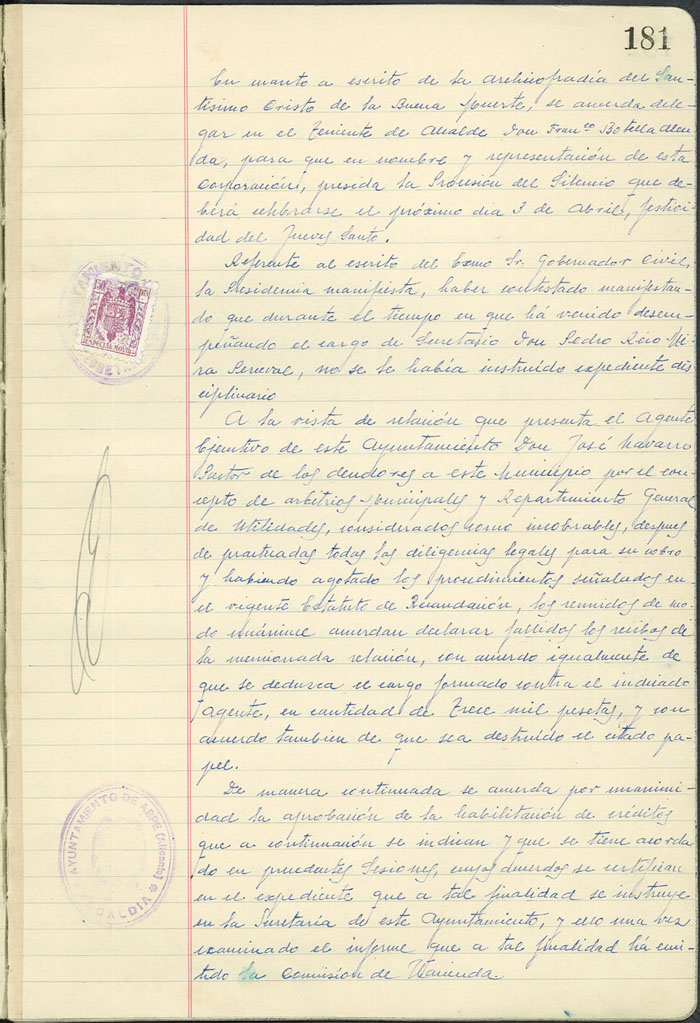 181
En cuanto a escrito de la Archicofradía del San-
tísimo Cristo de la Buena Muerte, se acuerda dele-
gar en el Teniente de Alcalde Don Franco Botella Alcu-
da, para que en nombre y representación de esta
Corporación, presida la Procesión del Silencio que de-
berá celebrarse el próximo dia 3 de Abril, festivi-
dad del Jueves Santo.
Referente al escrito del Excmo Sr. Gobernador Civil,
la Presidencia manifiesta, haber contestado manifestan-
do que durante el tiempo en que há venido desem-
peñando el cargo de Secretario Don Pedro Rico
, no se le había instruído expediente dis
ciplinario
A la vista de relación que presenta el Agente
Ejecutivo de este Ayuntamiento Don José Navarro
Pastor de los deudores a este Municipio por el con-
cepto de arbitrios Municipales y Repartimiento General
de Utilidades, considerados como incobrables, despues
de practicadas todas las diligencias legales para su cobro
y habiendo agotado los procedimientos señalados en
el vigente Estatuto de Recaudación, los reunidos de mo-
do unánime acuerdan declarar fallidos los recibos de
la mencionada relación, con acuerdo igualmente de
que se deduzca el cargo formado contra el indicado
Agente, en cantidad de Trece mil pesetas, y con
acuerdo tambien de que sea destruído el citado pa-
pel.
De manera continuada se acuerda por unanimi-
dad la aprobación de la habilitación de créditos
que a continuación se indican y que se tiene acorda
do en precedentes Sesiones, cuyos acuerdos se certifican
en el expediente que a tal finalidad se instruye
en la Secretaría de este Ayuntamiento, y ello una vez
examinado el informe que a tal finalidad há emi-
tido la Comisión de Hacienda.
AYUNTAMIENTO
ESPECIAL MOVIL
AYUNTAMIENTO DE ASPE (Alicante)
ALCALDIA